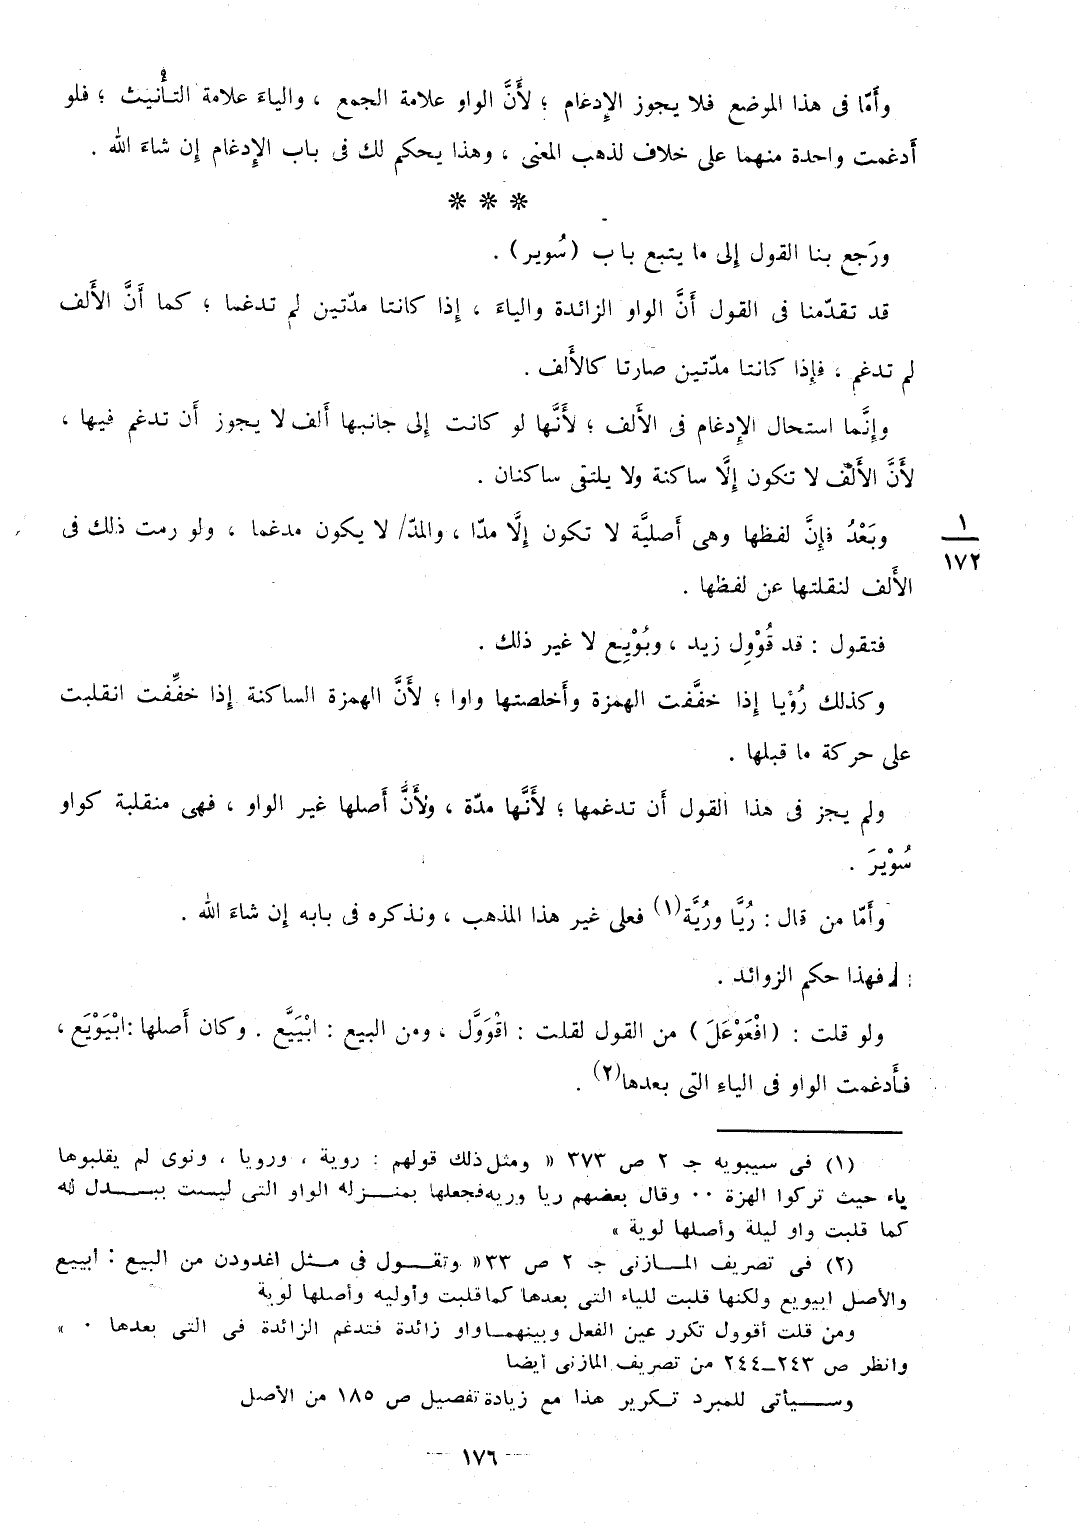 وأَمّا فى هذا الموضع فلا يجوز الإِدغام ؛ لأَنَّ الواو علامة الجمع ، والياءَ علامة التأْنيث ؛ فلو
أَدغمت واحدة منهما على خلاف لذهب المعنى ، وهذا يحكم لك فى باب الإِدغام إِن شاءَ الله .
* * *
ورَجع بنا القول إِلى ما يتبع باب (سُوير) .
قد تقدّمنا فى القول أَنَّ الواو الزائدة والياءَ ، إِذا كانتا مدّتين لم تدغما ؛ كما أَنَّ الأَلف
لم تدغم ، فإِذا كانتا مدّتين صارتا كالأَلف .
وإِنَّما استحال الإِدغام فى الأَلف ؛ لأَنَّها لو كانت إِلى جانبها أَلف لا يجوز أَن تدغم فيها ،
لأَنَّ الأَلف لا تكون إِلَّا ساكنة ولا يلتقى ساكنان .
وبَعْدُ فإِنَّ لفظها وهى أَصليَّة لا تكون إِلَّا مدّا ، والمدّ/ لا يكون مدغما ، ولو رمت ذلك فى
١
١٧٢
الأَلف لنقلتها عن لفظها .
فتقول : قد قُوْوِل زيد ، وبُوْيِع لا غير ذلك .
وكذلك رُؤْيا إِذا خفَّفت الهمزة وأَخلصتها واوا ؛ لأَنَّ الهمزة الساكنة إِذا خفِّفت انقلبت
على حركة ما قبلها .
ولم يجز فى هذا القول أَن تدغمها ؛ لأَنَّها مدّة ، ولأَنَّ أَصلها غير الواو ، فهى منقلبة كواو
سُوْيِرَ .
وأَمّا من قال : رُيَّا ورُيَّة(١) فعلى غير هذا المذهب ، ونذكره فى بابه إِن شاءَ الله .
فهذا حكم الزوائد .
ولو قلت : (افْعَوْعَلَ) من القول لقلت : اقْوَوَّل ، ومن البيع : ابْيَيَّع . وكان أَصلها : ابْيَوْيَع ،
فأَدغمت الواو فى الياءِ التى بعدها(٢) .
(١) فى سيبويه جـ ٢ ص ٣٧٣ « ومثل ذلك قولهم : روية ، ورويا ، ونوى لم يقلبوها
ياء حيث تركوا الهزة ٠٠ وقال بعضهم ريا وريه فجعلها بمنزله الواو التى ليست ببدل له
كما قلبت واو ليلة وأصلها لوية »
(٢) فى تصريف المازنى جـ ٢ ص ٣٣« وتقول فى مثل اغدودن من البيع : ابييع
والأصل ابيويع ولكنها قلبت للياء التى بعدها كما قلبت وأوليه وأصلها لوية
ومن قلت أقوول تكرر عين الفعل وبينهما واو زائدة فتدغم الزائدة فى التى بعدها ٠ »
وانظر ص ٢٤٣ـ٢٤٤ من تصريف المازنى أيضا
وسيأتى للمبرد تكرير هذا مع زيادة تفصيل ص ١٨٥ من الأصل
— ١٧٦ —